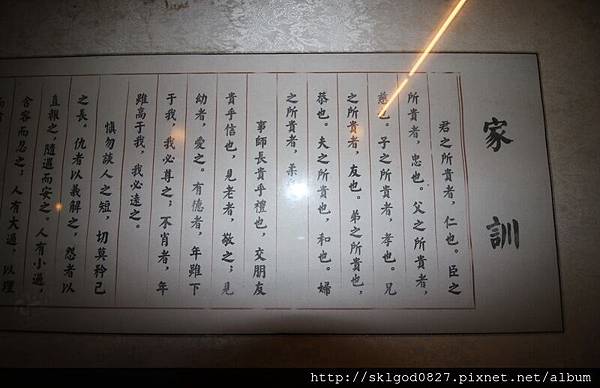 家訓
君之所貴者,仁也。臣之
所貴者,忠也。父之所貴者,
慈也。子之所貴者,孝也。兄
之所貴者,友也。弟之所貴也,
恭也。夫之所貴也,和也。婦
之所貴者,柔
事師長貴乎禮也,交朋友
貴乎信也,見老者,敬之;見
幼者,愛之。有德者,年雖下
于我,我必尊之;不肖者,年
雖高于我,我必遠之。
慎勿談人之短,切莫矜己
之長。仇者以義解之,怨者以
直報之,隨遇而安之。人有小過,
含容而忍之;人有大過,以理
http://sklgod0827.pixnet.net/album